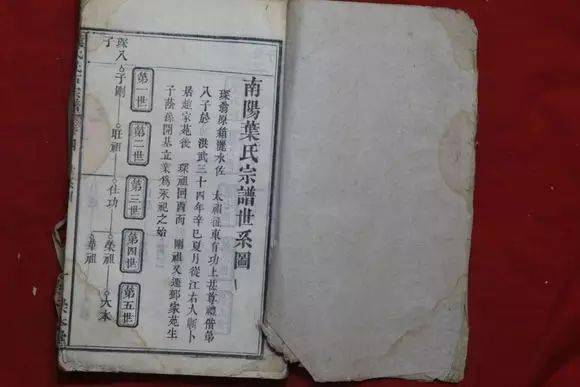 南陽葉氏宗譜世系圖
琛翁原籍麗水佐　太祖征東有功上甚尊禮偕弟
八子於　洪武三十四年辛巳夏月從江右入　卜
居趙家苑後　琛祖回酉而　剛祖又遷鄧家苑生
子蔭孫開基立業爲來祀之始
第一世
第二世
第三世
第四世
第五世
琛八
子
子剛
旺祖
仕功
榮祖
大本